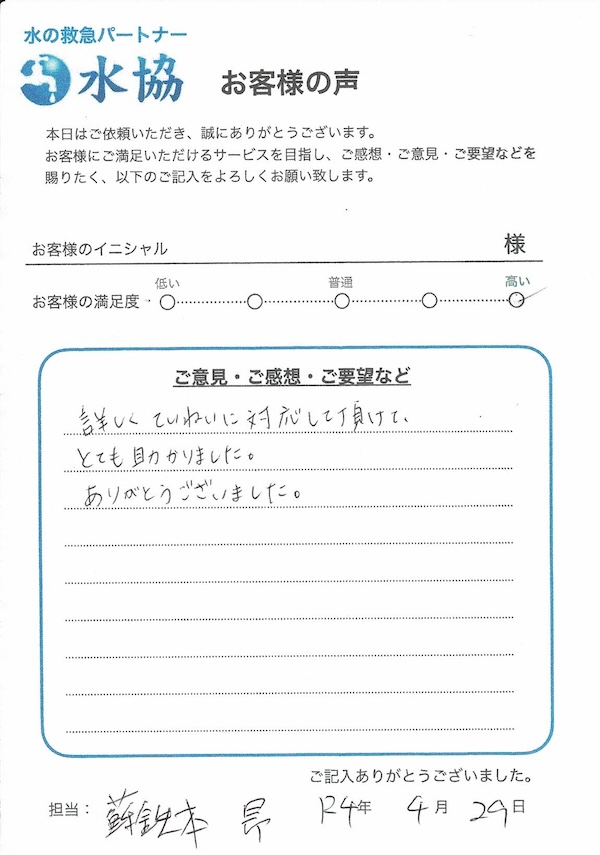 水の救急パートナー
水協 お客様の声
本日はご依頼いただき、誠にありがとうございます。
お客様にご満足いただけるサービスを目指し、ご感想・ご意見・ご要望などを
賜りたく、以下のご記入をよろしくお願い致します。
お客様のイニシャル 様
低い 普通 高い
お客様の満足度
ご意見・ご感想・ご要望など
詳しくていねいに対応して頂けて、
とても助かりました。
ありがとうございました。
ご記入ありがとうございました。
担当: 蘇鉄本 昴 R4年 4月 29日